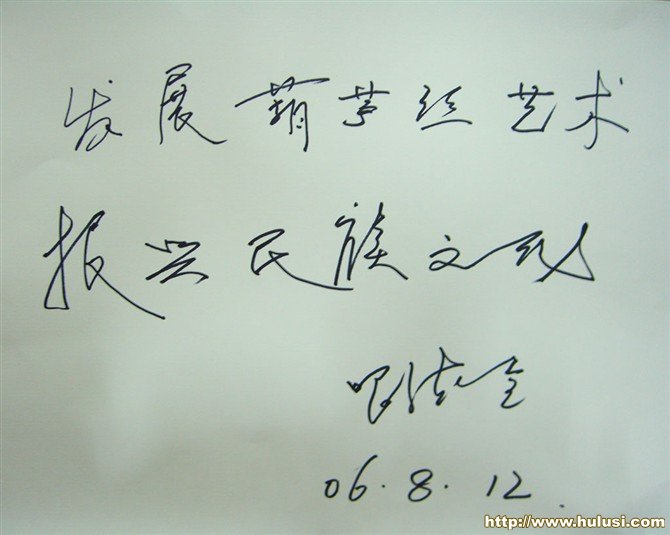 发展葫芦丝艺术
振兴民族文化
06.8.12
http://www.hulusi.com